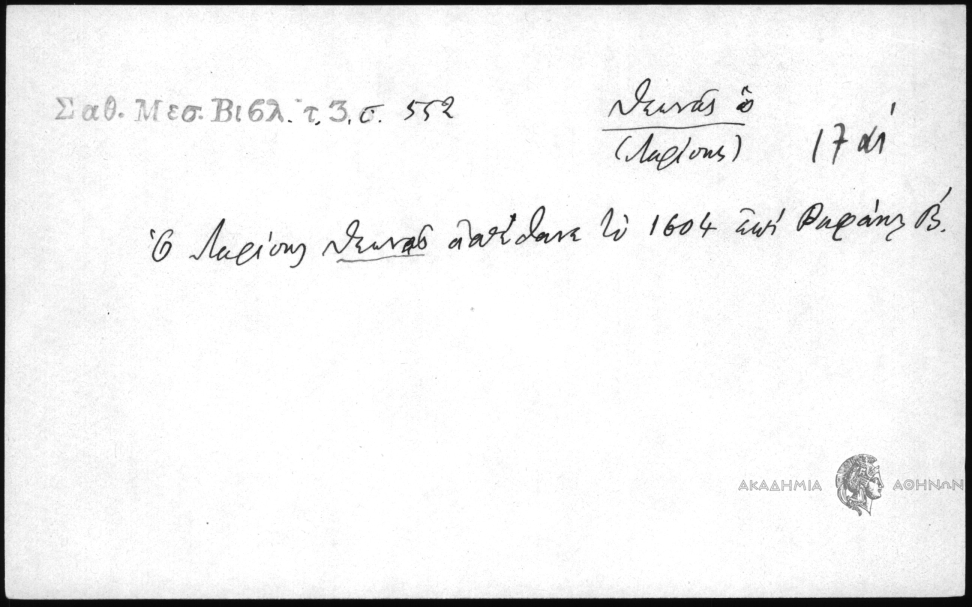 Σαθ. Μεσ. Βιβλ. τ. 3. σ. 552
Θεωνάς ὁ
(Λαρίσης)
17 αἰ
Ὁ Λαρίσης Θεωνᾶς ἀπέθανε τὸ 1604 ἐπὶ Ραφάηλ Β΄.
ΑΚΑΔΗΜΙΑ ΑΘΗΝΩΝ